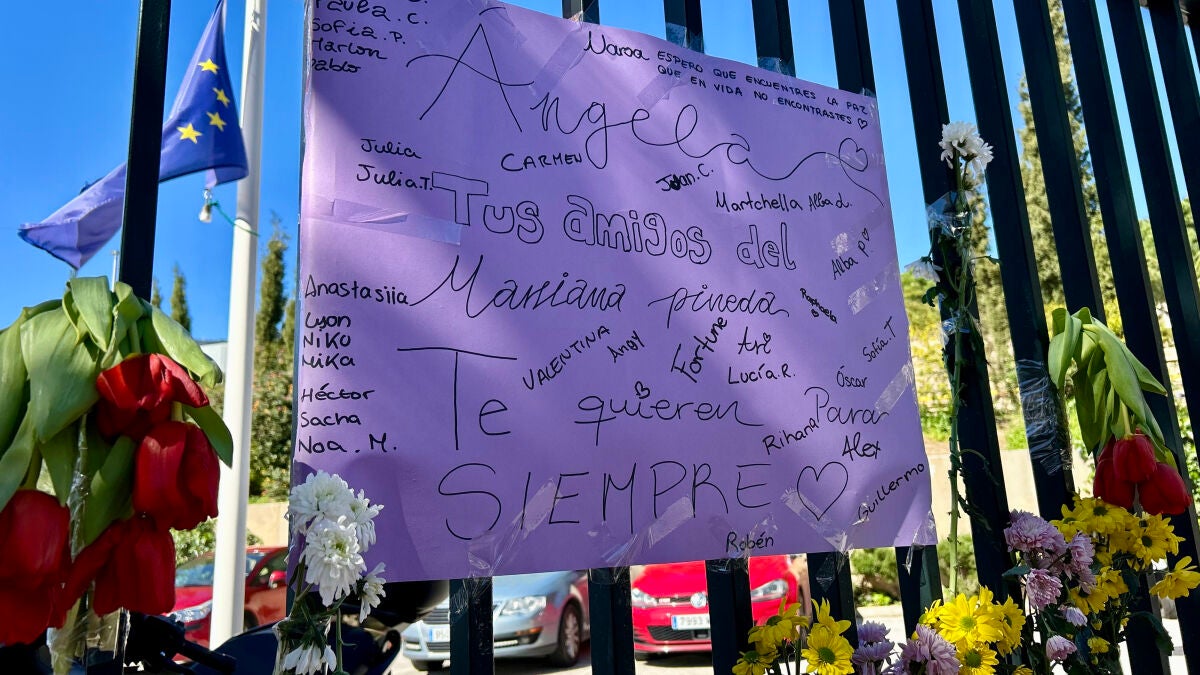 Paula.C.
Sofia.P.
Marlon
Pablo
Naroa ESPERO QUE ENCUENTRES LA PAZ
QUE EN VIDA NO ENCONTRASTES
Angela
Julia
Julia.T.
CARMEN
Juan.C.
Martchella Alba d.
Tus amigos del
Alba P.
Anastasiia
Mariana pineda
Raphaela
Lyon
Niko
Nika
VALENTINA
Andy
Fortune
Ari
Lucía.R.
Sofía.T
Te quieren Para
Óscar
Héctor
Sacha
Noa.M.
Rihana
Alex
SIEMPRE
Guillermo
Robén